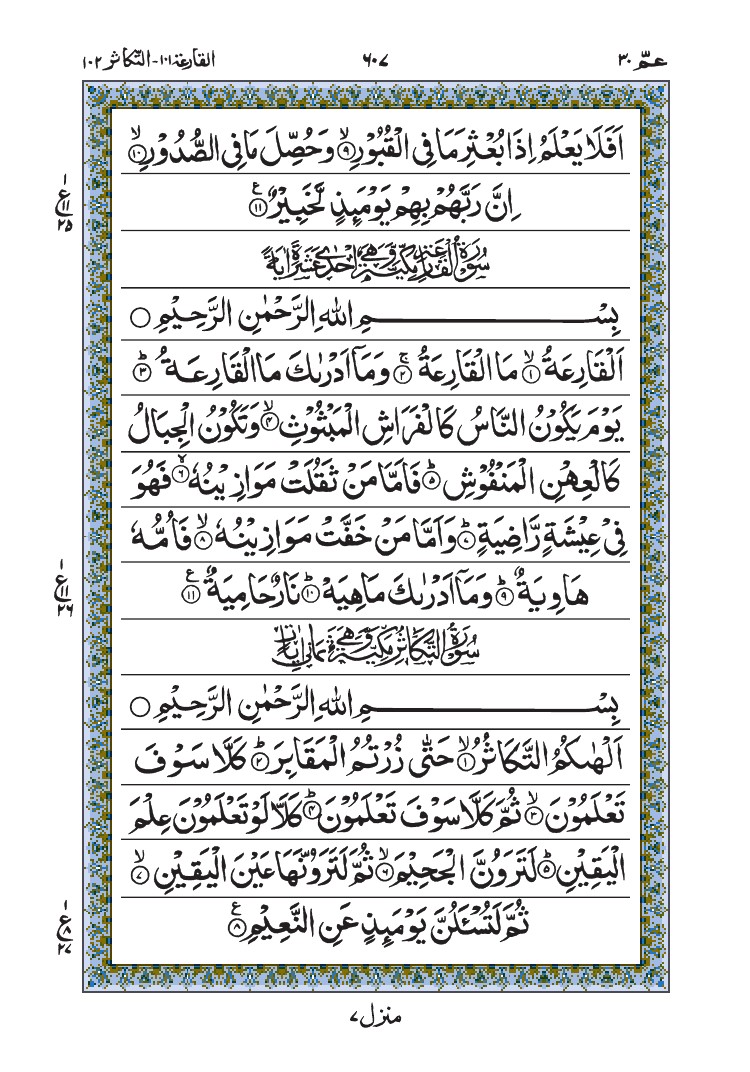 عمّ ۳۰
۶۰۷
القارعة ۱۰۱-التّکاثر ۱۰۲
اَفَلَا یَعْلَمُ اِذَا بُعْثِرَ مَا فِی الْقُبُوْرِۙ۝۹ وَ حُصِّلَ مَا فِی الصُّدُوْرِۙ۝۱۰
اِنَّ رَبَّهُمْ بِهِمْ یَوْمَىِٕذٍ لَّخَبِیْرٌ۠۝۱۱
۱ ع ۱۱ ۲۵
سُوْرَةُ الْقَارِعَةِ مَكِّيَّةٌ وَّهِيَ اِحْدٰى عَشْرَةَ اٰيَةً
بِسْمِ اللّٰهِ الرَّحْمٰنِ الرَّحِیْمِ ۝
اَلْقَارِعَةُۙ۝۱ مَا الْقَارِعَةُۚ۝۲ وَ مَاۤ اَدْرٰىكَ مَا الْقَارِعَةُؕ۝۳
یَوْمَ یَكُوْنُ النَّاسُ كَالْفَرَاشِ الْمَبْثُوْثِۙ۝۴ وَ تَكُوْنُ الْجِبَالُ
كَالْعِهْنِ الْمَنْفُوْشِؕ۝۵ فَاَمَّا مَنْ ثَقُلَتْ مَوَازِیْنُهٗۙ۝۶ فَهُوَ
فِیْ عِیْشَةٍ رَّاضِیَةٍؕ۝۷ وَ اَمَّا مَنْ خَفَّتْ مَوَازِیْنُهٗۙ۝۸ فَاُمُّهٗ
هَاوِیَةٌؕ۝۹ وَ مَاۤ اَدْرٰىكَ مَا هِیَهْؕ۝۱۰ نَارٌ حَامِیَةٌ۠۝۱۱
۱ ع ۱۱ ۲۶
سُوْرَةُ التَّكَاثُرِ مَكِّيَّةٌ وَّهِيَ ثَمَانِيْ اٰيَاتٍ
بِسْمِ اللّٰهِ الرَّحْمٰنِ الرَّحِیْمِ ۝
اَلْهٰىكُمُ التَّكَاثُرُۙ۝۱ حَتّٰى زُرْتُمُ الْمَقَابِرَؕ۝۲ كَلَّا سَوْفَ
تَعْلَمُوْنَۙ۝۳ ثُمَّ كَلَّا سَوْفَ تَعْلَمُوْنَؕ۝۴ كَلَّا لَوْ تَعْلَمُوْنَ عِلْمَ
الْیَقِیْنِؕ۝۵ لَتَرَوُنَّ الْجَحِیْمَۙ۝۶ ثُمَّ لَتَرَوُنَّهَا عَیْنَ الْیَقِیْنِۙ۝۷
ثُمَّ لَتُسْـَٔلُنَّ یَوْمَىِٕذٍ عَنِ النَّعِیْمِ۠۝۸
۱ ع ۸ ۲۷
منزل ۷